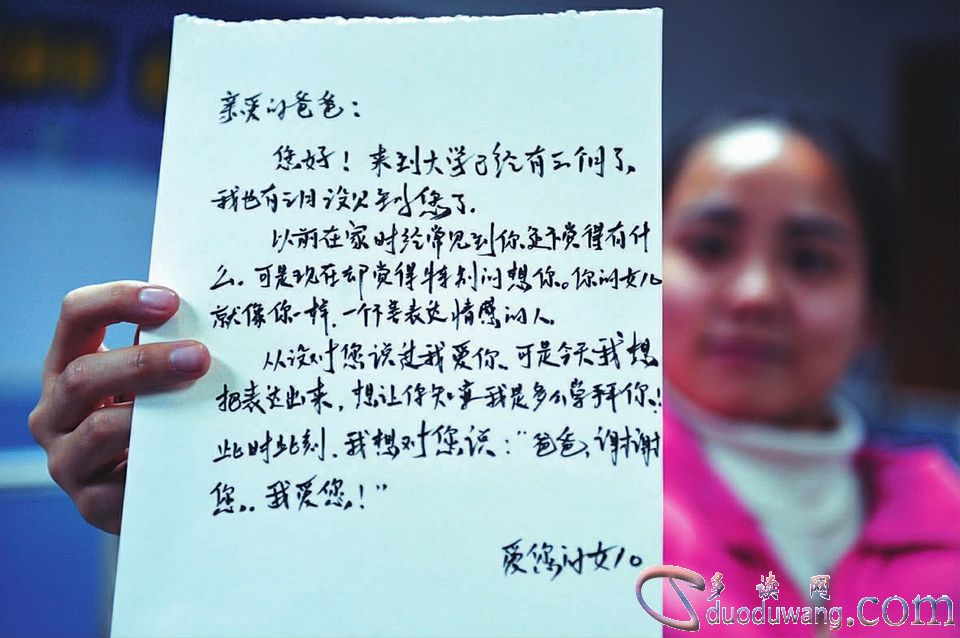 亲爱的爸爸：
您好！来到大学已经有三个月了。
我也有三月没见到您了.
以前在家时经常见到你还不觉得有什
么。可是现在却觉得特别的想你。你的女儿
就像你一样，一个不善表达情感的人.
从没对您说过我爱你。可是今天我想
把表达出来，想让你知道我是多么崇拜你！
此时此刻，我想对您说：“爸爸，谢谢
您。我爱您！”
爱您的女儿
多读网
duoduwang.com